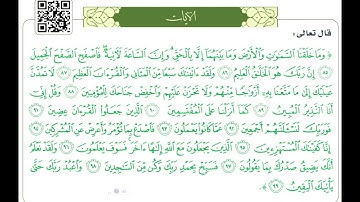 الآيات
قال تعالى:
﴿ وَمَا خَلَقْنَا السَّمَاوَاتِ وَالْأَرْضَ وَمَا بَيْنَهُمَا إِلَّا بِالْحَقِّ وَإِنَّ السَّاعَةَ لَآتِيَةٌ فَاصْفَحِ الصَّفْحَ الْجَمِيلَ
٨٥ إِنَّ رَبَّكَ هُوَ الْخَلَّاقُ الْعَلِيمُ ٨٦ وَلَقَدْ آتَيْنَاكَ سَبْعًا مِنَ الْمَثَانِي وَالْقُرْآنَ الْعَظِيمَ ٨٧ لَا تَمُدَّنَّ
عَيْنَيْكَ إِلَى مَا مَتَّعْنَا بِهِ أَزْوَاجًا مِنْهُمْ وَلَا تَحْزَنْ عَلَيْهِمْ وَاخْفِضْ جَنَاحَكَ لِلْمُؤْمِنِينَ ٨٨ وَقُلْ إِنِّي
أَنَا النَّذِيرُ الْمُبِينُ ٨٩ كَمَا أَنْزَلْنَا عَلَى الْمُقْتَسِمِينَ ٩٠ الَّذِينَ جَعَلُوا الْقُرْآنَ عِضِينَ ٩١
فَوَرَبِّكَ لَنَسْأَلَنَّهُمْ أَجْمَعِينَ ٩٢ عَمَّا كَانُوا يَعْمَلُونَ ٩٣ فَاصْدَعْ بِمَا تُؤْمَرُ وَأَعْرِضْ عَنِ الْمُشْرِكِينَ ٩٤
إِنَّا كَفَيْنَاكَ الْمُسْتَهْزِئِينَ ٩٥ الَّذِينَ يَجْعَلُونَ مَعَ اللَّهِ إِلَهًا آخَرَ فَسَوْفَ يَعْلَمُونَ ٩٦ وَلَقَدْ نَعْلَمُ
أَنَّكَ يَضِيقُ صَدْرُكَ بِمَا يَقُولُونَ ٩٧ فَسَبِّحْ بِحَمْدِ رَبِّكَ وَكُنْ مِنَ السَّاجِدِينَ ٩٨ وَاعْبُدْ رَبَّكَ حَتَّى
يَأْتِيَكَ الْيَقِينُ ٩٩ ﴾